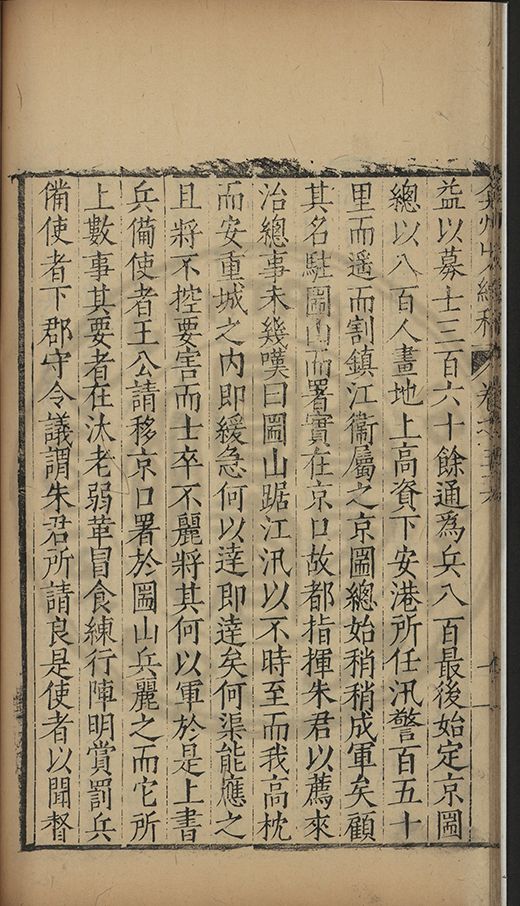 弇州山人續稿 卷之
益以募士三百六十餘通爲兵八百最後始定京圌
總以八百人畫地上高資下安港所任汛警百五十
里而遥而割鎮江衞屬之京圌總始稍稍成軍矣顧
其名駐圌山而署實在京口故都指揮朱君以薦來
治總事未幾嘆曰圌山踞江汛以不時至而我高枕
而安重城之内即緩急何以逹即逹矣何渠能應之
且將不控要害而士卒不麗將其何以軍於是上書
兵備使者王公請移京口署於圌山兵麗之而它所
上數事其要者在汰老弱革冒食練行陣明賞罰兵
備使者下郡守令議謂朱君所請良是使者以聞督